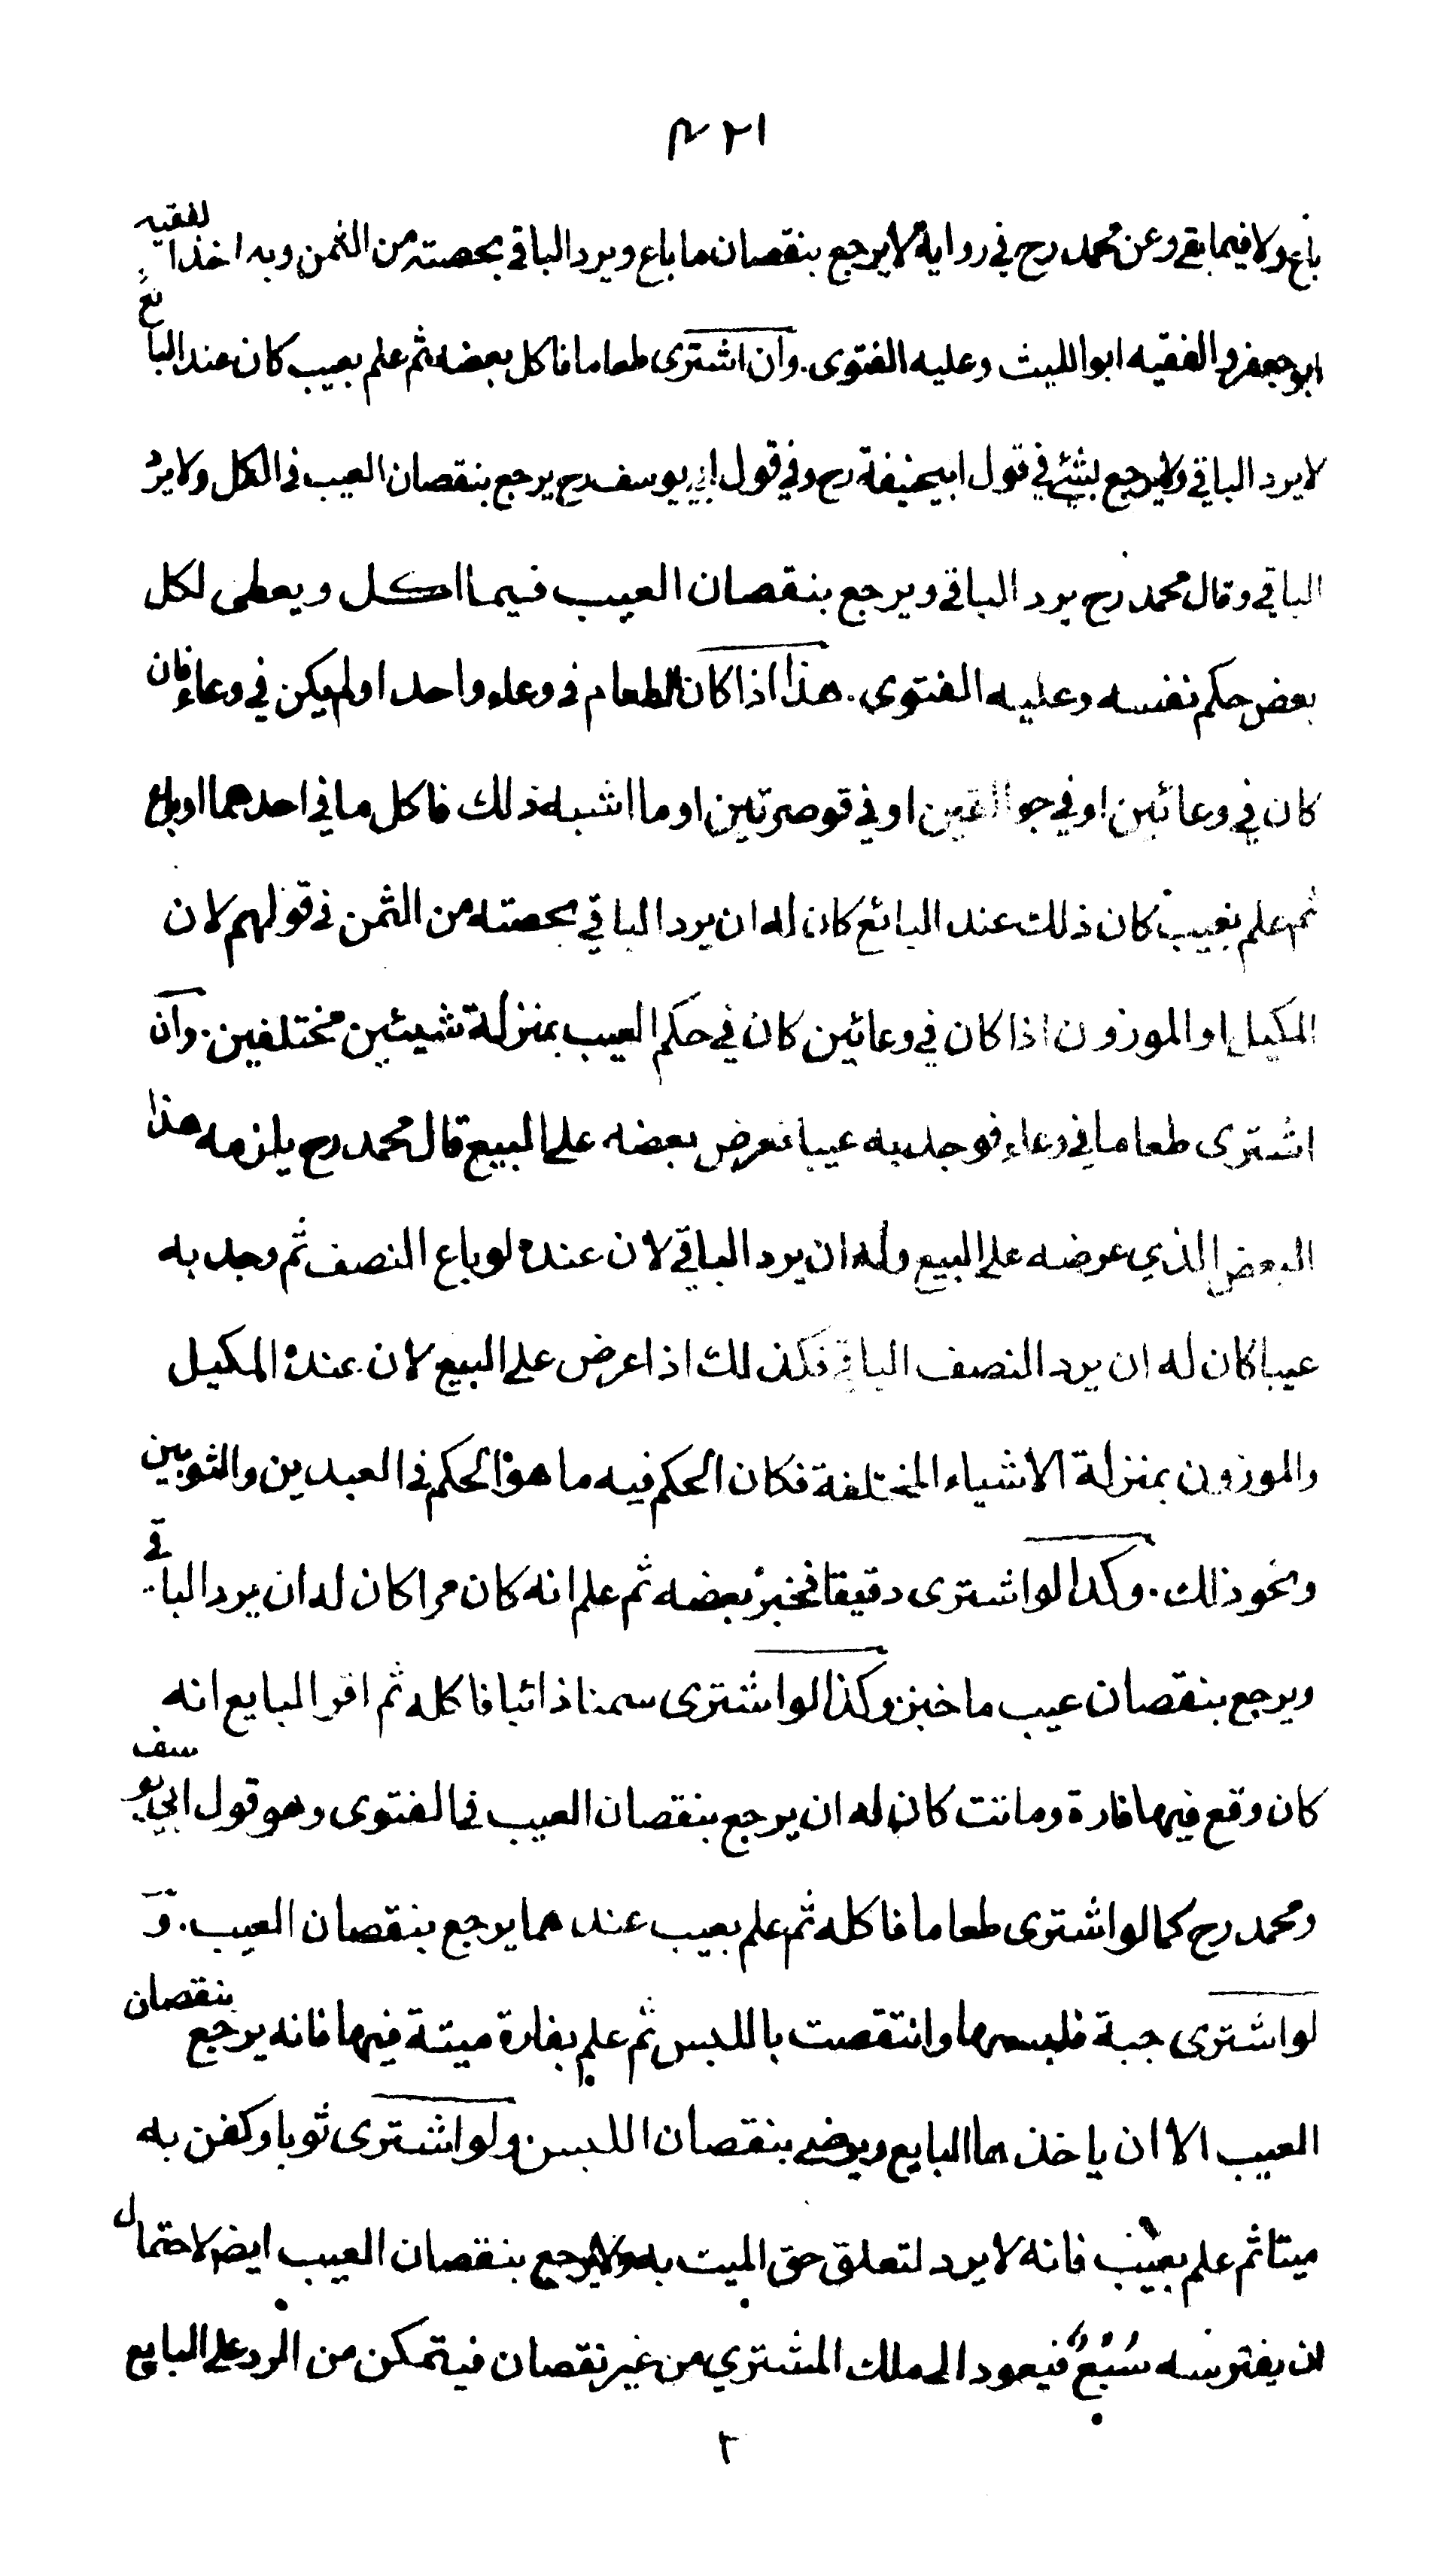 ٤٢١
باع ولا فيما بقي وعن محمد رح في رواية لا يرجع بنقصان ما باع ويرد الباقي بحصته من الثمن وبه اخذ الفقيه
ابو جعفر والفقيه ابوالليث وعليه الفتوى. وان اشترى طعاما فاكل بعضه ثم علم بعيب كان عند البائع
لا يرد الباقي ولا يرجع بشئ في قول ابيحنيفة رح وفي قول ابي يوسف رح يرجع بنقصان العيب في الكل ولا يرد
الباقي وقال محمد رح يرد الباقي ويرجع بنقصان العيب فيما اكل ويعطى لكل
بعض حكم نفسه وعليه الفتوى. هذا اذا كان الطعام في وعاء واحد اولم يكن في وعاء فان
كان في وعائين اوفي جوالقين اوفي قوصرتين اوما اشبه ذلك فاكل ما في احدهما اوباع
ثم علم بعيب كان ذلك عند البائع كان له ان يرد الباقي بحصته من الثمن في قولهم لان
المكيل او الموزون اذا كان في وعائين كان في حكم العيب بمنزلة شيئين مختلفين. وان
اشترى طعاما في وعاء فوجد به عيبا فعرض بعضه على البيع قال محمد رح يلزمه هذا
البعض الذي عرضه على البيع وله ان يرد الباقي لان عنده لو باع النصف ثم وجد به
عيبا كان له ان يرد النصف الباقي فكذلك اذا عرض على البيع لان عنده المكيل
والموزون بمنزلة الاشياء المختلفة فكان الحكم فيه ما هو الحكم في العبدين والثوبين
ونحو ذلك. وكذا لو اشترى دقيقا فخبز بعضه ثم علم انه كان مرا كان له ان يرد الباقي
ويرجع بنقصان عيب ما خبز وكذا لو اشترى سمنا ذائبا فاكله ثم اقر البايع انه
كان وقع فيها فارة وماتت كان له ان يرجع بنقصان العيب في الفتوى وهو قول ابي يوسف
ومحمد رح كما لو اشترى طعاما فاكله ثم علم بعيب عندهما يرجع بنقصان العيب. و
لو اشترى جبة فلبسها وانتقصت باللبس ثم علم بفارة ميتة فيها فانه يرجع بنقصان
العيب الا ان ياخذها البايع ويرضى بنقصان اللبس ولو اشترى ثوبا وكفن به
ميتا ثم علم بعيب فانه لا يرد لتعلق حق الميت به ولا يرجع بنقصان العيب ايضا لاحتمال
ان يفترسه سَبُعٌ فيعود الى ملك المشتري من غير نقصان فيتمكن من الرد على البايع